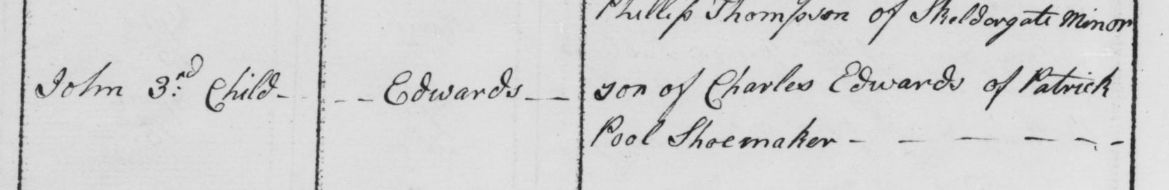 Phillip Thompson of Skeldergate Minor
John 3.rd Child - - - Edwards - - son of Charles Edwards of Patrick
Pool Shoemaker - - - - - -